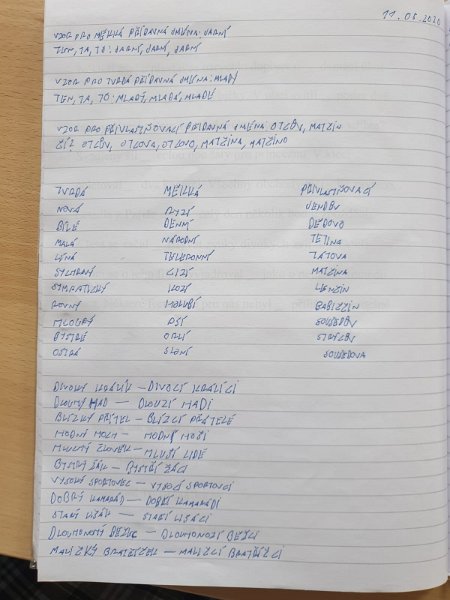 11.05.2020
VZOR PRO MĚKKÁ PŘÍDAVNÁ JMÉNA: JARNÍ
TEN, TA, TO: JARNÍ, JARNÍ, JARNÍ
VZOR PRO TVRDÁ PŘÍDAVNÁ JMÉNA: MLADÝ
TEN, TA, TO: MLADÝ, MLADÁ, MLADÉ
VZOR PRO PŘIVLASTŇOVACÍ PŘÍDAVNÁ JMÉNA: OTCŮV, MATČIN
OTCŮV, OTCOVA, OTCOVO, MATČINA, MATČINO
TVRDÁ MĚKKÁ PŘIVLASTŇOVACÍ
NOVÁ RYZÍ
BÍLÉ DENNÍ DĚDOVO
MALÁ NÁRODNÍ TETINA
LÍNÁ TELEFONNÍ TÁTOVA
CIZÍ MATČINA
SYMPATICKÝ KOZÍ
ROVNÝ HOLUBÍ BABIČČIN
HLOUPÝ PSÍ SOUSEDŮV
BYSTRÉ ORLÍ STRÝCŮV
OSTRÁ SLONÍ SOUSEDOVA
DIVOKÝ KRÁLÍK – DIVOCÍ KRÁLÍCI
DLOUHÝ HAD – DLOUZÍ HADI
BLÍZKÝ PŘÍTEL – BLÍZCÍ PŘÁTELÉ
MODNÝ HOCH – MODNÍ HOŠI
HLUCHÝ ČLOVĚK – HLUŠÍ LIDÉ
BYSTRÝ ŽÁK – BYSTŘÍ ŽÁCI
VYSOKÝ SPORTOVEC – VYSOCÍ SPORTOVCI
DOBRÝ KAMARÁD – DOBŘÍ KAMARÁDI
STARÝ LIŠÁK – STAŘÍ LIŠÁCI
DLOUHONOHÝ BĚŽEC – DLOUHONOZÍ BĚŽCI
MALIČKÝ BRATŘÍČEK – MALIČCÍ BRATŘÍČCI